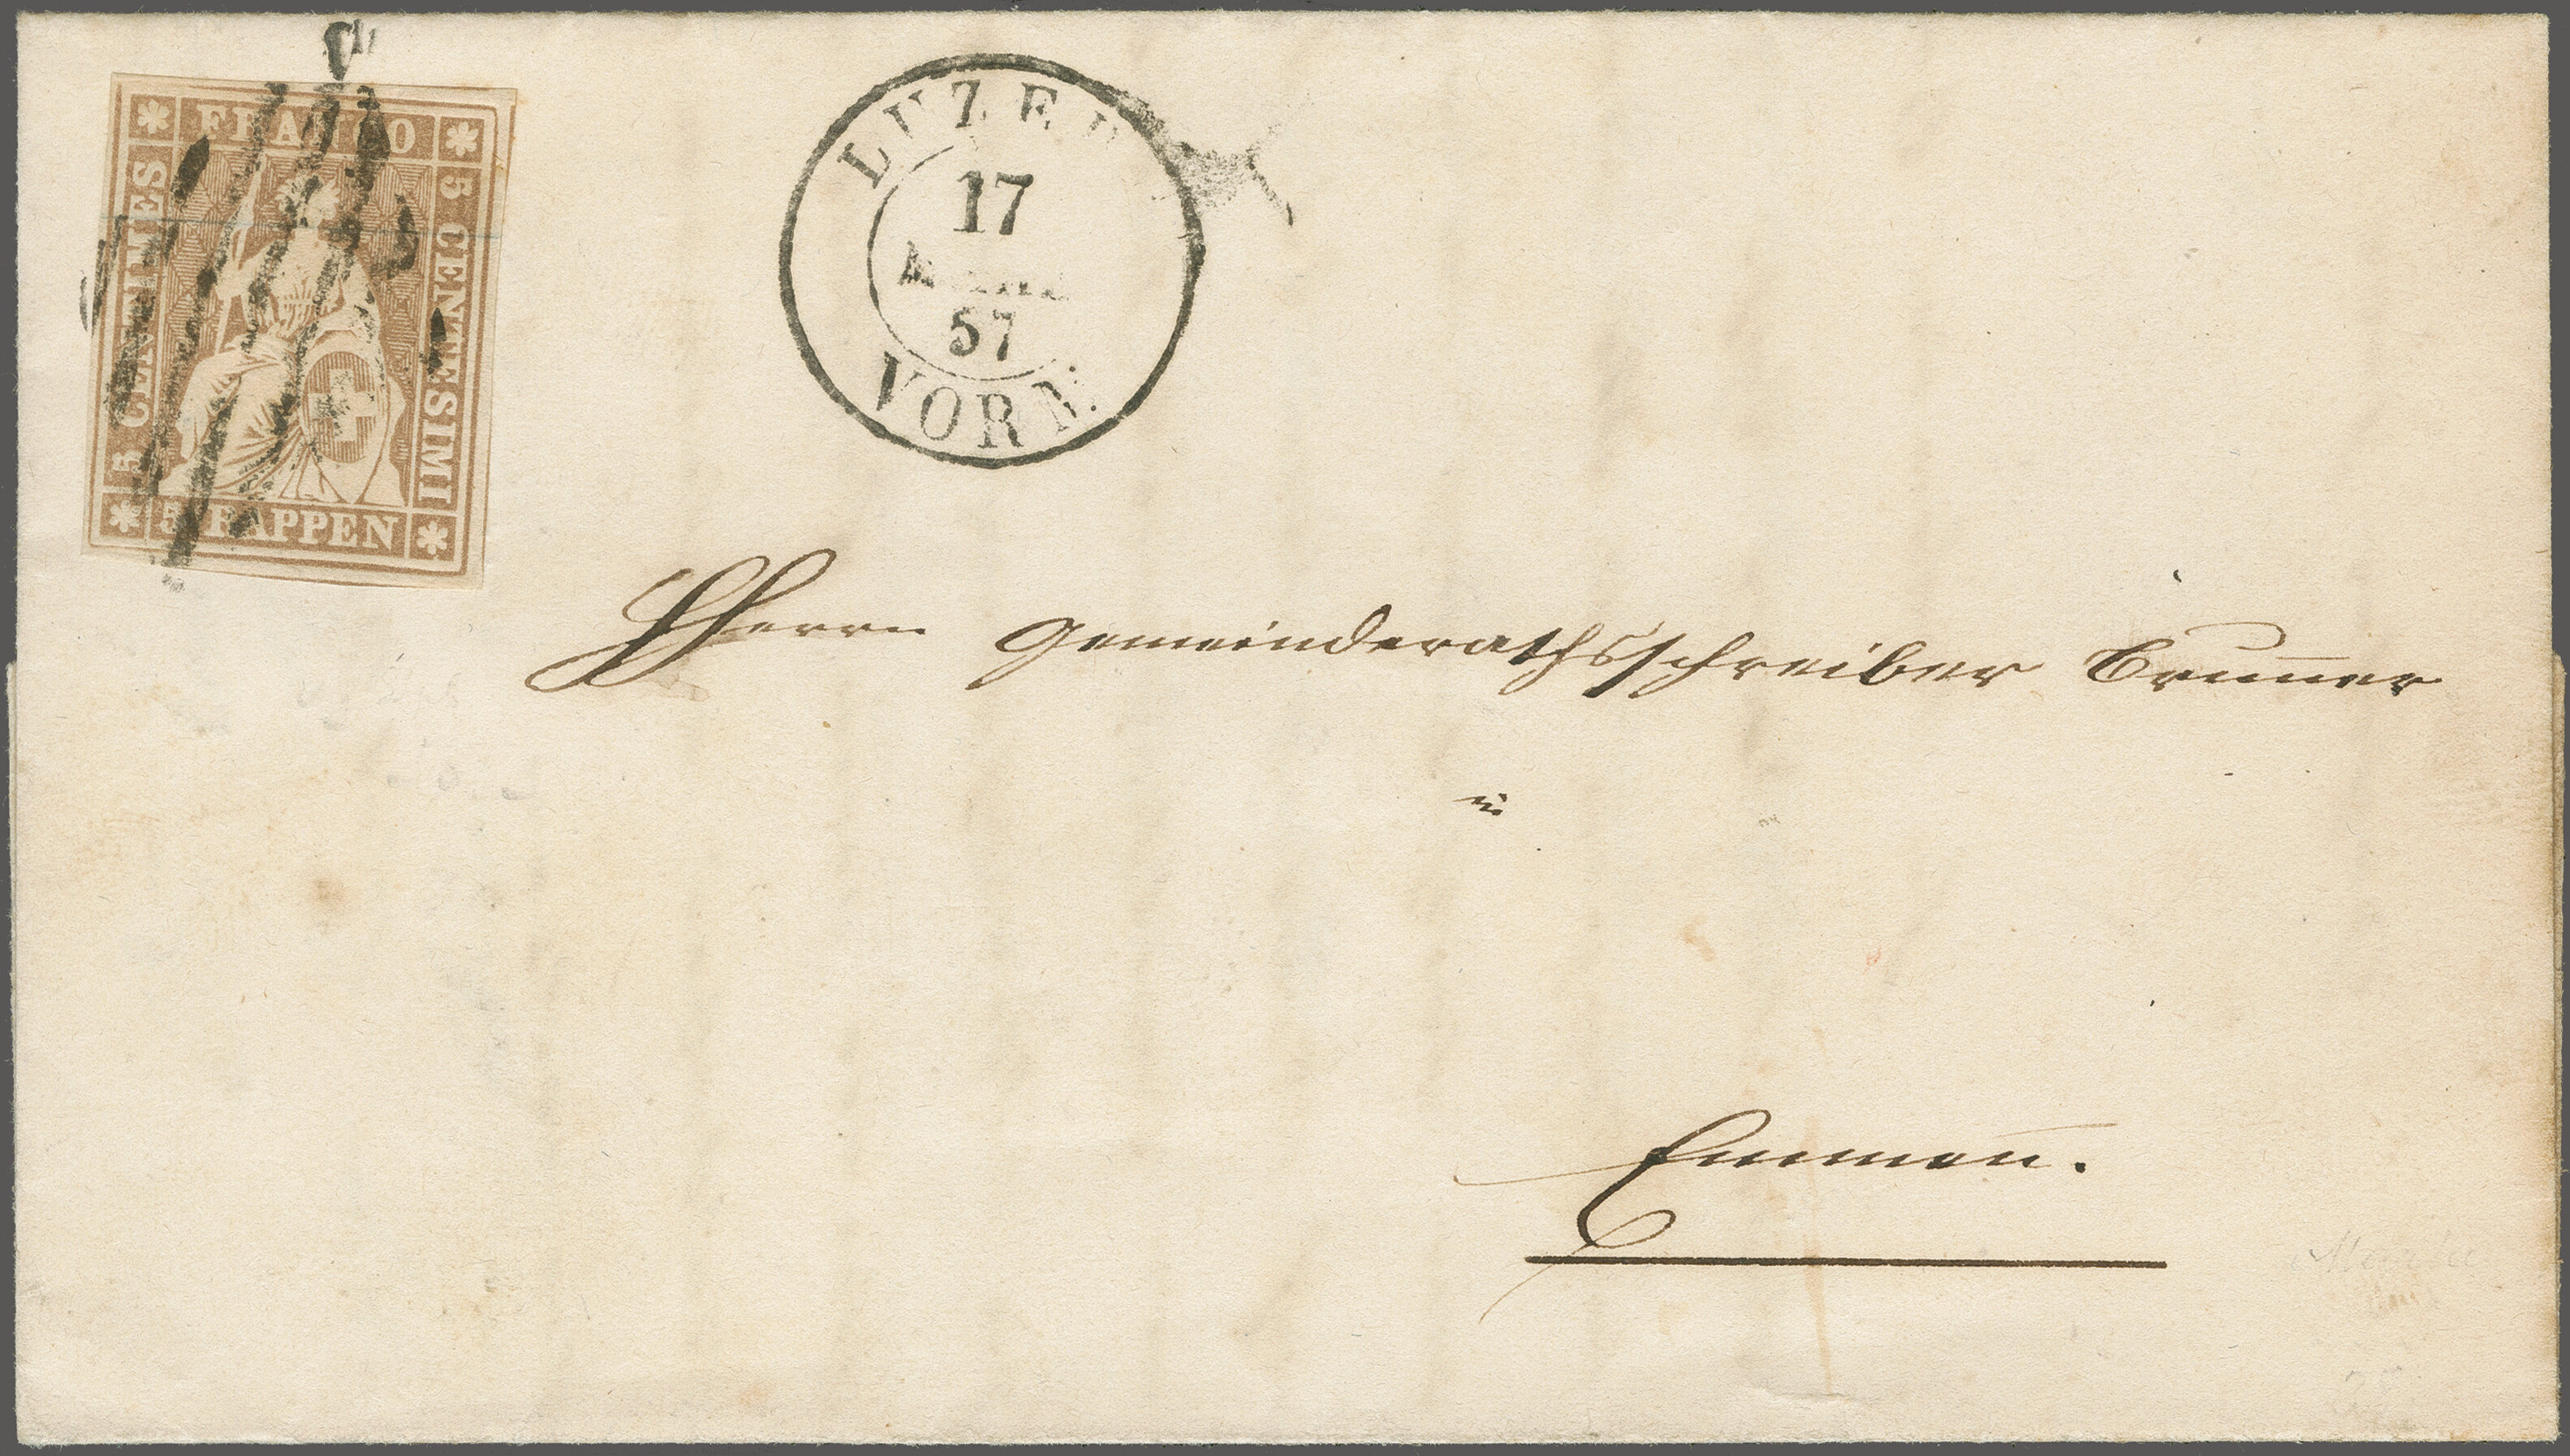 FRANCO
5 CENTIMES
5 CENTESIMI
5 RAPPEN
LUZERN
17
57
VORM
Herrn Gemeinderathsschreiber Brunner
in
Emmen.